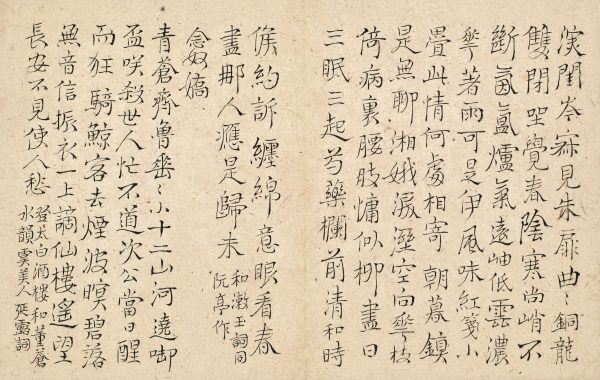 深閨岑寂見朱扉曲〻銅龍
雙閉坐覺春陰寒尚峭不
斷氤氳爐氣遠岫低雲濃
華著雨可是伊風味紅箋小
疊此情何處相寄 朝暮鎮
是無聊湘娥淚溼空向華枝
倚病裏腰肢慵似柳盡日
三眠三起芍藥欄前清和時
候約訴纏綿意眼看春
盡那人應是歸未
和漱玉詞同
阮亭作
念奴嬌
青蒼齊魯〻小十二山河遶啣
盃笑殺世人忙不道次公當日醒
而狂騎鯨客去煙波暝碧落
無音信振衣一上謫仙樓遙望
長安不見使人愁
登太白酒樓和董蒼
水韻虞美人 延露詞